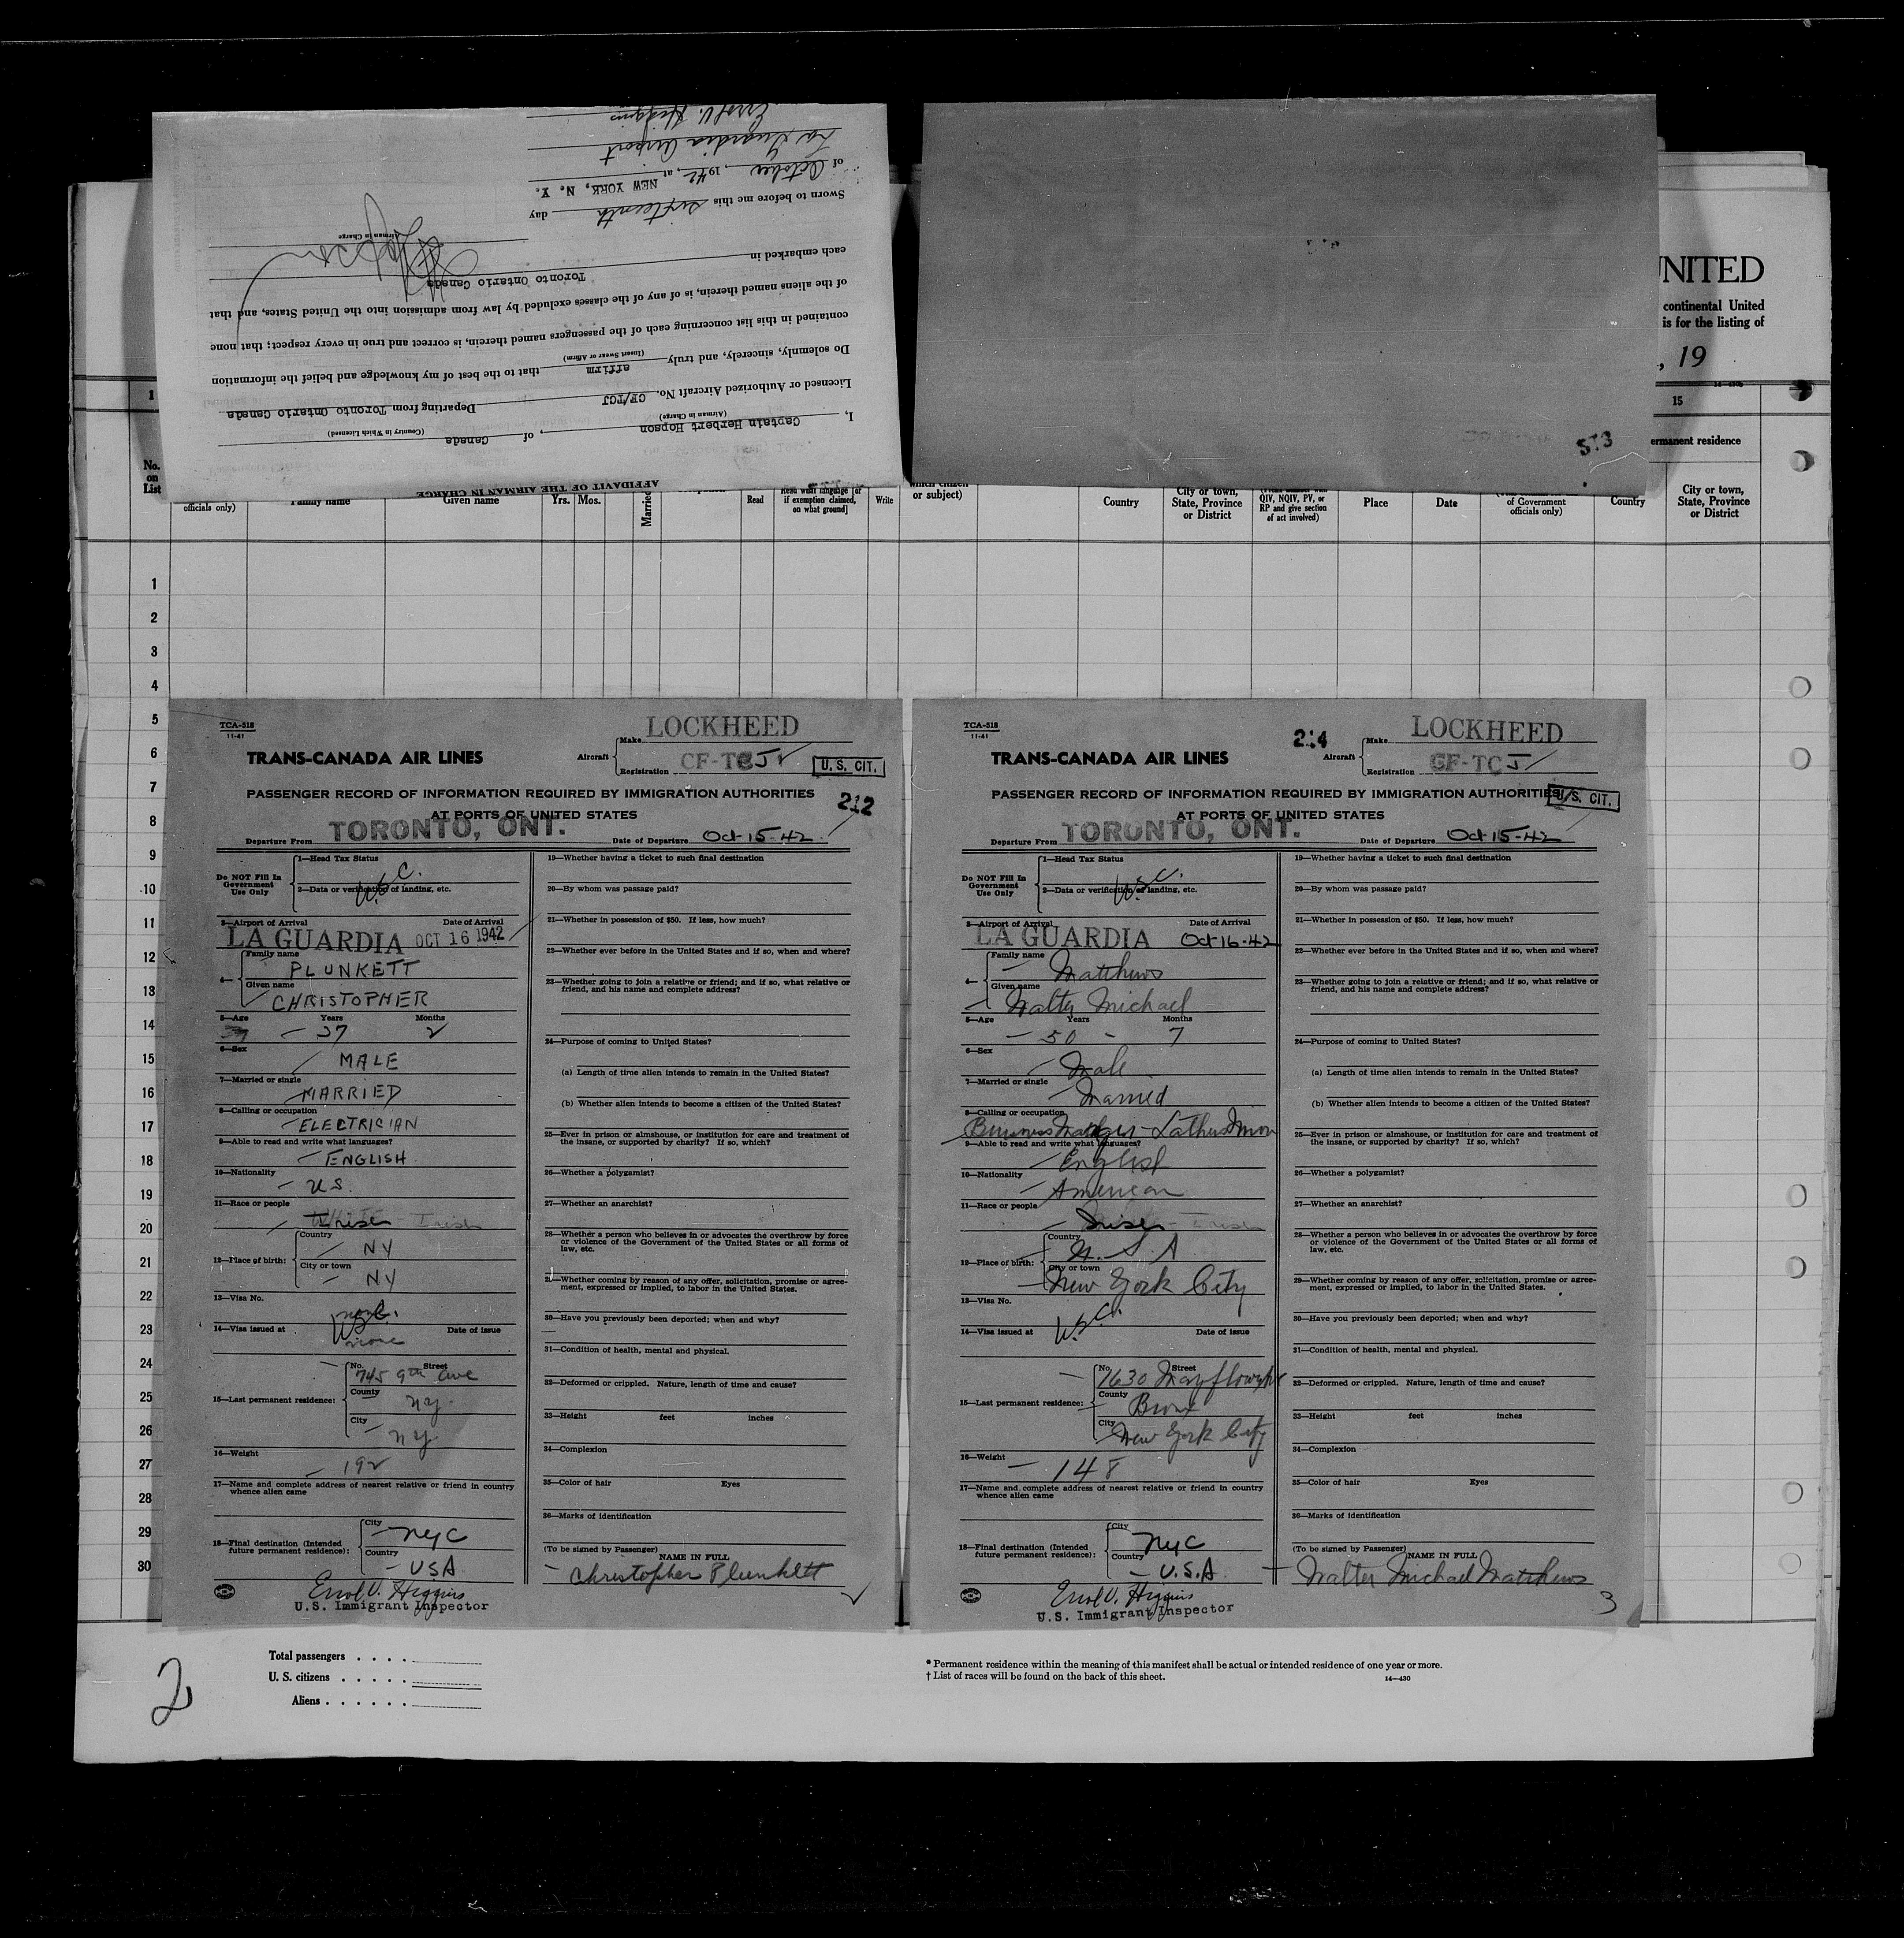 AFFIDAVIT OF THE AIRMAN IN CHARGE
I, Captain Herbert Hopson, of Canada
(Airman in Charge) (Country in Which Licensed)
Licensed or Authorized Aircraft No. CF/TCJ Departing from Toronto Ontario Canada
Do solemnly, sincerely, and truly affirm that to the best of my knowledge and belief the information
(Insert Swear or Affirm)
contained in this list concerning each of the passengers named therein, is correct and true in every respect; that none
of the aliens named therein, is of any of the classes excluded by law from admission into the United States, and that
each embarked in Toronto Ontario Canada
Airman in Charge
Sworn to before me this sixteenth day
of October, 1942, at NEW YORK, N. Y.
La Guardia Airport
Errol V. Higgins
UNITED
continental United
is for the listing of
, 19
1
15
ermanent residence
No.
on
List
officials only)
Family name
Given name
Yrs. Mos.
Married
Read
Read what language [or
if exemption claimed,
on what ground]
Write
or subject)
Country
City or town,
State, Province
or District
QIV, NQIV, PV, or
RP and give section
of act involved)
Place
Date
of Government
officials only)
Country
City or town,
State, Province
or District
1
2
3
4
5
6
7
8
9
10
11
12
13
14
15
16
17
18
19
20
21
22
23
24
25
26
27
28
29
30
TCA-518
11-41
TRANS-CANADA AIR LINES
Aircraft
Make LOCKHEED
Registration CF-TCJ
U. S. CIT.
PASSENGER RECORD OF INFORMATION REQUIRED BY IMMIGRATION AUTHORITIES
212
AT PORTS OF UNITED STATES
Departure From TORONTO, ONT. Date of Departure Oct-15-42
Do NOT Fill In
Government
Use Only
1—Head Tax Status
2—Data or verification of landing, etc.
3—Airport of Arrival Date of Arrival
LA GUARDIA OCT 16 1942
4—
Family name
PLUNKETT
Given name
CHRISTOPHER
5—Age Years Months
37 2
6—Sex
MALE
7—Married or single
MARRIED
8—Calling or occupation
ELECTRICIAN
9—Able to read and write what languages?
ENGLISH
10—Nationality
US
11—Race or people
Irish
12—Place of birth:
Country
NY
City or town
NY
13—Visa No.
14—Visa issued at Date of issue
none
15—Last permanent residence:
No. Street
745 9th Ave
County
NY
City
NY
16—Weight
192
17—Name and complete address of nearest relative or friend in country
whence alien came
18—Final destination (Intended
future permanent residence):
City
NYC
Country
USA
Errol V. Higgins
U.S. Immigrant Inspector
19—Whether having a ticket to such final destination
20—By whom was passage paid?
21—Whether in possession of $50. If less, how much?
22—Whether ever before in the United States and if so, when and where?
23—Whether going to join a relative or friend; and if so, what relative or
friend, and his name and complete address?
24—Purpose of coming to United States?
(a) Length of time alien intends to remain in the United States?
(b) Whether alien intends to become a citizen of the United States?
25—Ever in prison or almshouse, or institution for care and treatment of
the insane, or supported by charity? If so, which?
26—Whether a polygamist?
27—Whether an anarchist?
28—Whether a person who believes in or advocates the overthrow by force
or violence of the Government of the United States or all forms of
law, etc.
29—Whether coming by reason of any offer, solicitation, promise or agree-
ment, expressed or implied, to labor in the United States.
30—Have you previously been deported; when and why?
31—Condition of health, mental and physical.
32—Deformed or crippled. Nature, length of time and cause?
33—Height feet inches
34—Complexion
35—Color of hair Eyes
36—Marks of identification
(To be signed by Passenger)
NAME IN FULL
Christopher Plunkett
TCA-518
11-41
TRANS-CANADA AIR LINES
214
Aircraft
Make LOCKHEED
Registration CF-TCJ
U. S. CIT.
PASSENGER RECORD OF INFORMATION REQUIRED BY IMMIGRATION AUTHORITIES
AT PORTS OF UNITED STATES
Departure From TORONTO, ONT. Date of Departure Oct-15-42
Do NOT Fill In
Government
Use Only
1—Head Tax Status
2—Data or verification of landing, etc.
3—Airport of Arrival Date of Arrival
LA GUARDIA Oct-16-42
4—
Family name
Matthews
Given name
Walter Michael
5—Age Years Months
50 7
6—Sex
Male
7—Married or single
Married
8—Calling or occupation
Business Manager - Lathers Union
9—Able to read and write what languages?
English
10—Nationality
American
11—Race or people
Irish
12—Place of birth:
Country
U. S. A
City or town
New York City
13—Visa No.
14—Visa issued at Date of issue
15—Last permanent residence:
No. Street
1630 Mayflower Ave
County
Bronx
City
New York City
16—Weight
148
17—Name and complete address of nearest relative or friend in country
whence alien came
18—Final destination (Intended
future permanent residence):
City
NYC
Country
U.S.A
Errol V. Higgins
U.S. Immigrant Inspector
19—Whether having a ticket to such final destination
20—By whom was passage paid?
21—Whether in possession of $50. If less, how much?
22—Whether ever before in the United States and if so, when and where?
23—Whether going to join a relative or friend; and if so, what relative or
friend, and his name and complete address?
24—Purpose of coming to United States?
(a) Length of time alien intends to remain in the United States?
(b) Whether alien intends to become a citizen of the United States?
25—Ever in prison or almshouse, or institution for care and treatment of
the insane, or supported by charity? If so, which?
26—Whether a polygamist?
27—Whether an anarchist?
28—Whether a person who believes in or advocates the overthrow by force
or violence of the Government of the United States or all forms of
law, etc.
29—Whether coming by reason of any offer, solicitation, promise or agree-
ment, expressed or implied, to labor in the United States.
30—Have you previously been deported; when and why?
31—Condition of health, mental and physical.
32—Deformed or crippled. Nature, length of time and cause?
33—Height feet inches
34—Complexion
35—Color of hair Eyes
36—Marks of identification
(To be signed by Passenger)
NAME IN FULL
Walter Michael Matthews
3
2
Total passengers . . . .
U. S. citizens . . . . .
Aliens . . . . . .
* Permanent residence within the meaning of this manifest shall be actual or intended residence of one year or more.
† List of races will be found on the back of this sheet.
14—430